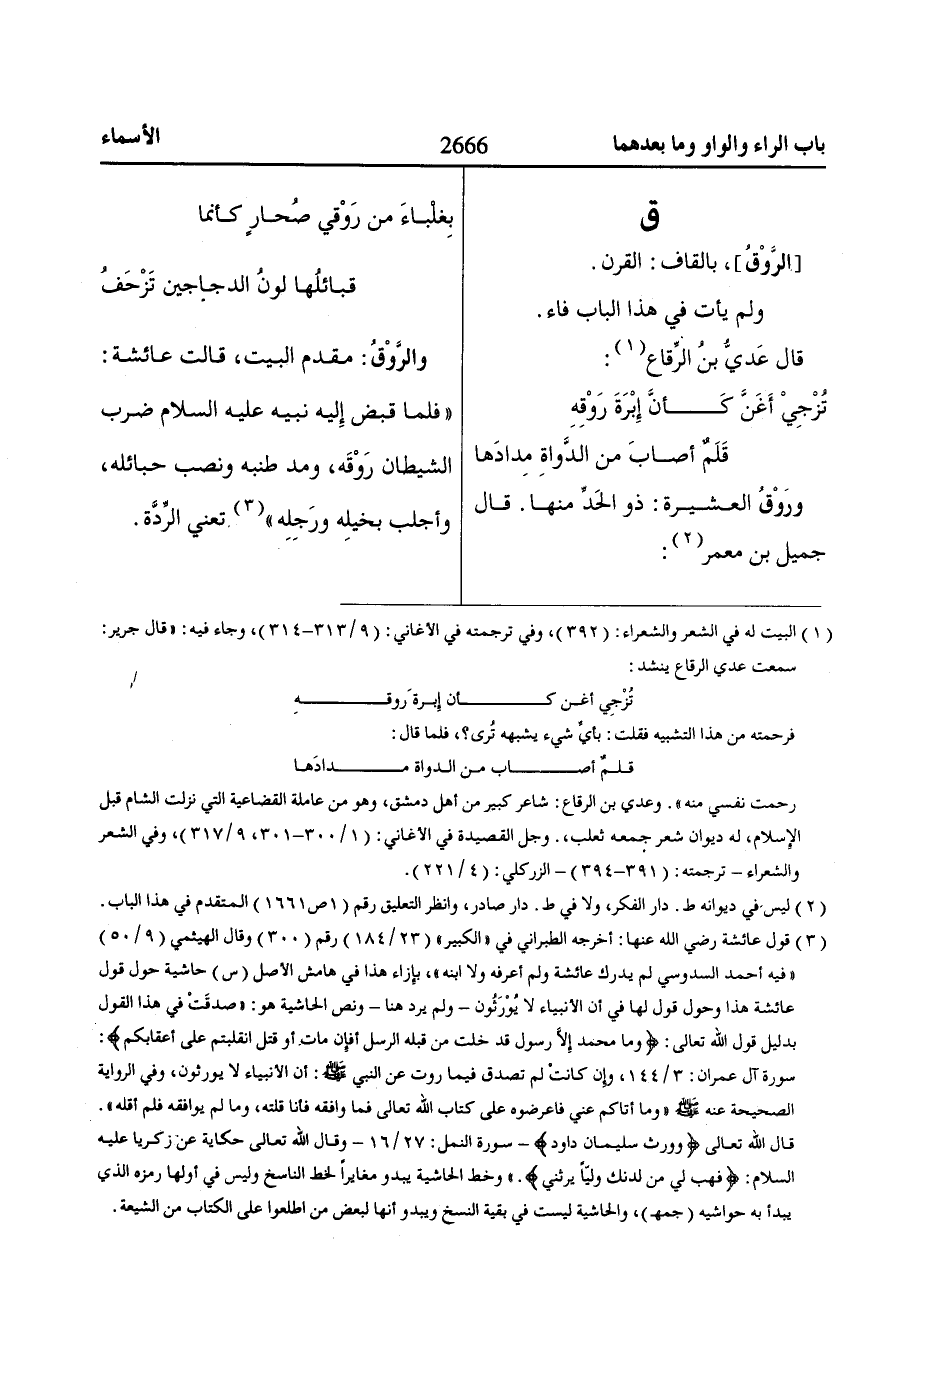 باب الراء والواو وما بعدهما
2666
الأسماء
ق
[الرَّوْقُ]، بالقاف: القرن.
ولم يأت في هذا الباب فاء.
قال عَديُّ بنُ الرِّقاع(١):
تُزْجِيْ أغَنَّ كَــــأنَّ إبْرَةَ رَوْقِهِ
قَلَمٌ أصــابَ من الدَّواةِ مِدادَها
ورَوْقُ العـشـيـرة: ذو الحَدِّ منهـا. قـال
جميل بن معمر(٢):
بِغلْبـاءَ من رَوْقي صُحـارٍ كـأنمـا
قبـائلُهـا لونُ الدجـاجـين تَزْحَفُ
والرَّوْقُ: مقدم البيت، قالت عائشة:
«فلما قبض إليه نبيه عليه السلام ضرب
الشيطان رَوْقَه، ومد طنبه ونصب حبائله،
وأجلب بخيلِه ورَجِلِه»(٣) تعني الرِّدَّة.
(١) البيت له في الشعر والشعراء: (٣٩٢)، وفي ترجمته في الأغاني: (٩/٣١٣-٣١٤)، وجاء فيه: «قال جرير:
سمعت عدي الرقاع ينشد:
تُزْجي أغـن كـــــــأن إبـرة رَوقـــــــهِ
فرحمته من هذا التشبيه فقلت: بأيِّ شيء يشبهه تُرى؟، فلما قال:
قـلـمٌ أصـــــاب مـن الـدواة مـــــدادَهـا
رحمت نفسي منه». وعدي بن الرقاع: شاعر كبير من أهل دمشق، وهو من عاملة القضاعية التي نزلت الشام قبل
الإسلام، له ديوان شعر جمعه ثعلب،. وجل القصيدة في الأغاني: (١/٣٠٠-٣٠١، ٩/٣١٧)، وفي الشعر
والشعراء – ترجمته: (٣٩١-٣٩٤) – الزركلي: (٤/٢٢١).
(٢) ليس في ديوانه ط. دار الفكر، ولا في ط. دار صادر، وانظر التعليق رقم (١ص١٦٦١) المتقدم في هذا الباب.
(٣) قول عائشة رضي الله عنها: أخرجه الطبراني في «الكبير» (٢٣/١٨٤) رقم (٣٠٠) وقال الهيثمي (٩/٥٠)
«فيه أحمد السدوسي لم يدرك عائشة ولم أعرفه ولا ابنه»، بإزاء هذا في هامش الأصل (س) حاشية حول قول
عائشة هذا وحول قول لها في أن الأنبياء لا يُوْرَثُون – ولم يرد هنا – ونص الحاشية هو: «صدقَتْ في هذا القول
بدليل قول الله تعالى: ﴿وما محمد إلاَّ رسول قد خلت من قبله الرسل أفإن مات أو قتل انقلبتم على أعقابكم﴾:
سورة آل عمران: ٣/١٤٤، وإن كانتْ لم تصدق فيما روت عن النبي ﷺ: أن الأنبياء لا يورثون، وفي الرواية
الصحيحة عنه ﷺ «وما أتاكم عني فاعرضوه على كتاب الله تعالى فما وافقه فأنا قلته، وما لم يوافقه فلم أقله».
قال الله تعالى ﴿وورث سليمان داود﴾ – سورة النمل: ٢٧/١٦ – وقال الله تعالى حكاية عن زكريا عليه
السلام: ﴿فهب لي من لدنك وليّاً يرثني﴾.» وخط الحاشية يبدو مغايراً لخط الناسخ وليس في أولها رمزه الذي
يبدأ به حواشيه (جمهـ)، والحاشية ليست في بقية النسخ ويبدو أنها لبعض من اطلعوا على الكتاب من الشيعة.